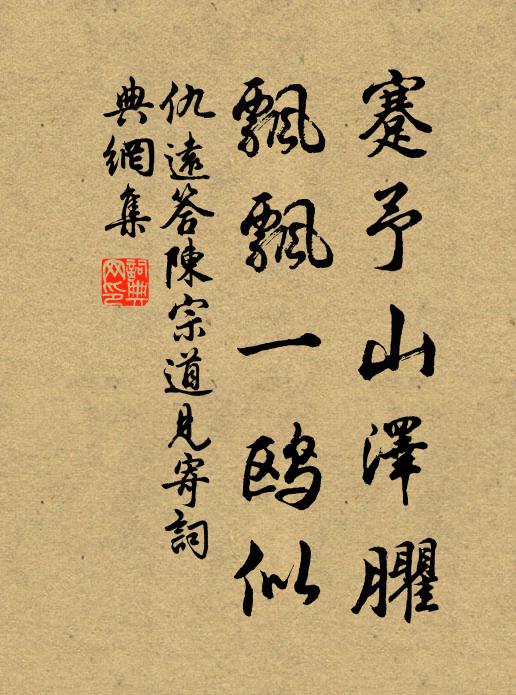 蹇予山澤臞
飄飄一鷗似
仇遠答陳宗道見寄詞
典網集
詞典網印